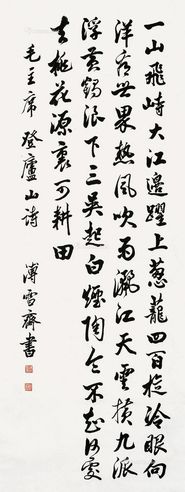 一山飛峙大江邊躍上蔥蘢四百旋冷眼向
洋看世界熱風吹雨灑江天雲橫九派
浮黃鶴浪下三吳起白煙陶令不知何處
去桃花源裏可耕田
毛主席登廬山詩 溥雪齋書